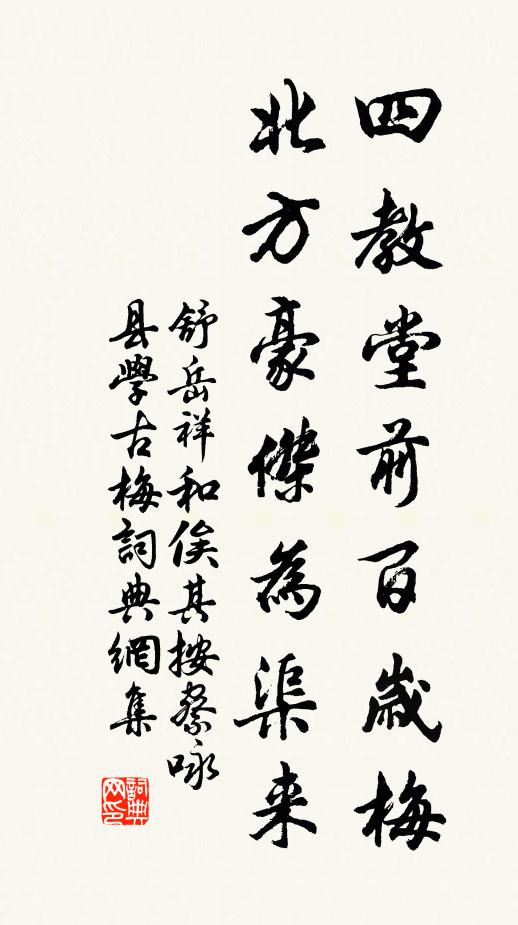 四教堂前百歲梅
北方豪傑為渠来
舒岳祥和俟其按察咏
县學古梅詞典網集
詞典網印